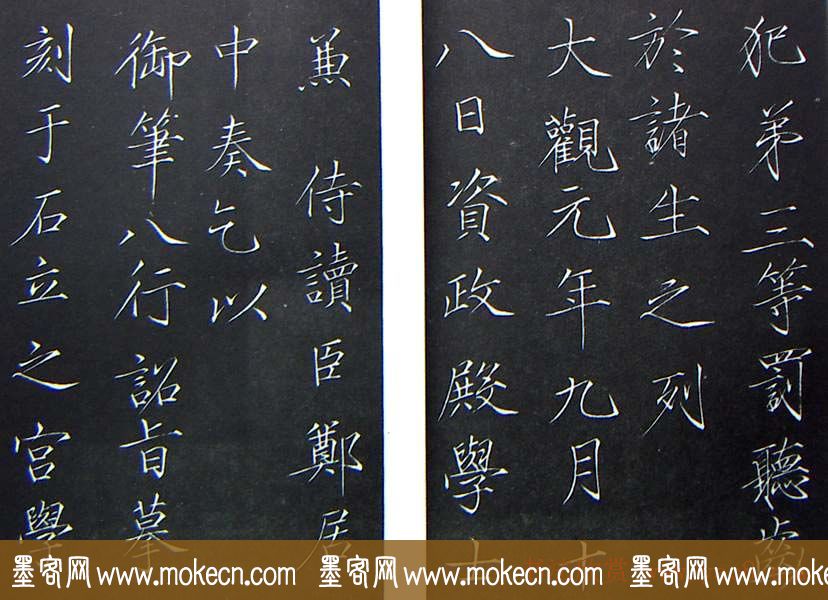 犯第三等罰聽齒
於諸生之列
大觀元年九月十
八日資政殿學士
兼侍讀臣鄭居
中奏乞以
御筆八行詔旨摹
刻于石立之宮學
墨客网 www.mokecn.com 墨客网 www.mokecn.com 墨客网 www.mokecn.com